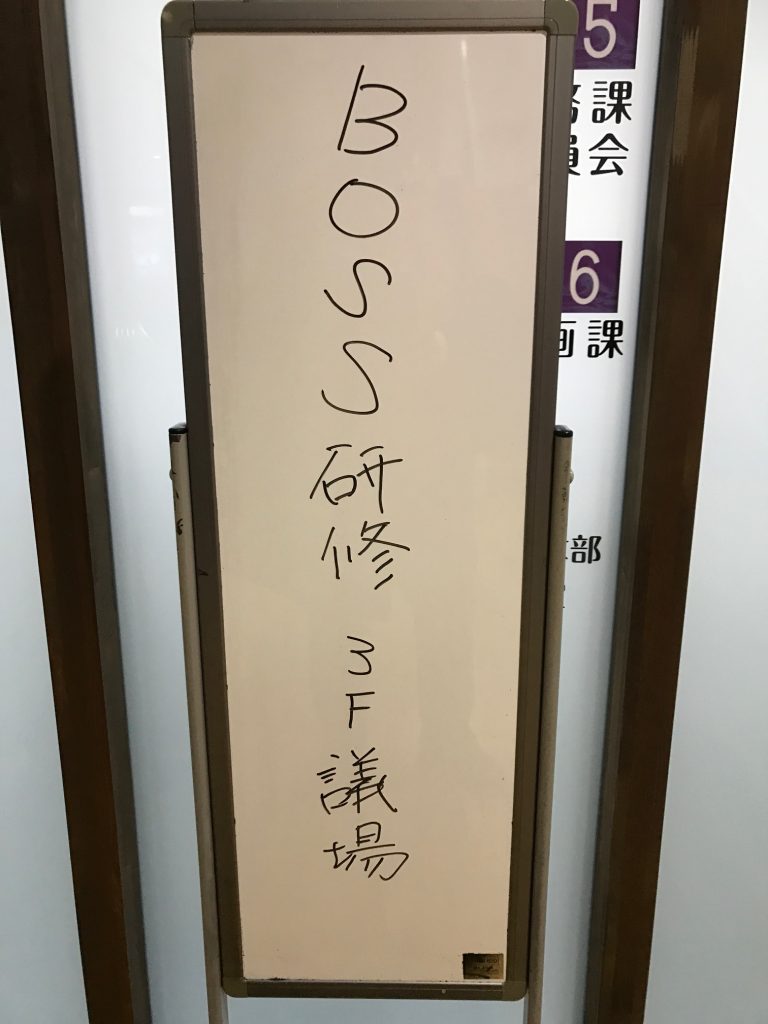 BOSS研修 3F議場
5
課
員会
6
画課
部